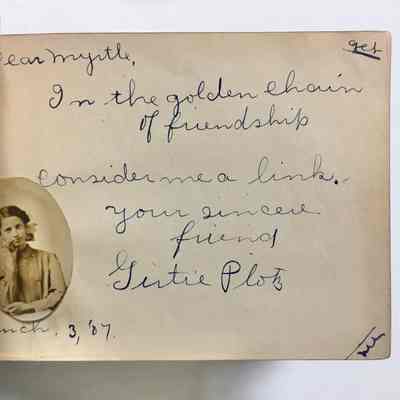 ear Myrtle,
In the golden chain
of friendship
consider me a link.
Your sincere
friend
Gertie Plotz
nch. 3, '07.